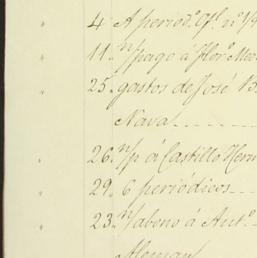 4 A period.º Of.l nº 1/9
11. n/pago á Flor.º Me
25. gastos de José B
Nava
26. n/p á Castillo Herm
29. 6 periódicos
23. n/abono á Ant.º
Aleman